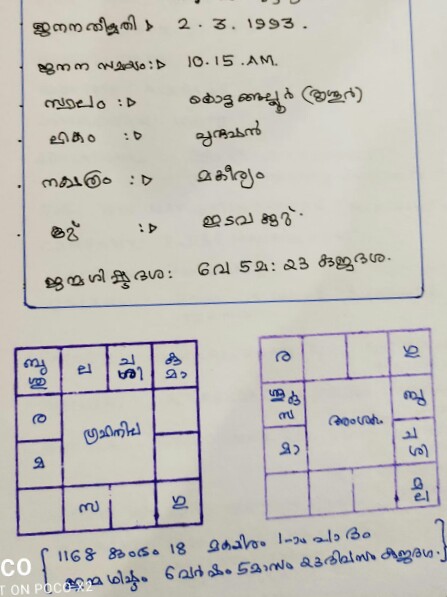 ജനന തിയ്യതി :▷ 2 . 3 . 1993 .
ജനന സമയം :▷ 10.15 .AM.
സ്ഥലം :▷ കൊടുങ്ങല്ലൂർ (തൃശൂർ)
ലിംഗം :▷ പുരുഷൻ
നക്ഷത്രം :▷ മകീര്യം
കൂറ് :▷ ഇടവ കൂറ് .
ജന്മശിഷ്ടദശ : 6വ 5മ : 23 കുജദശ .
ബു ശു ല ച ശി കു മാ
ര ഗ്രഹനില
മ
സ ഗു
ര ഗു
ശു കു സ അംശകം ബു
മാ ച ശി
മ ല
1168 കുംഭം 18 മകയിരം 1-ാം പാദം
ജന്മശിഷ്ടം 6 വർഷം 5 മാസം 23 ദിവസം കുജദശ .
CO
T ON POCO X2